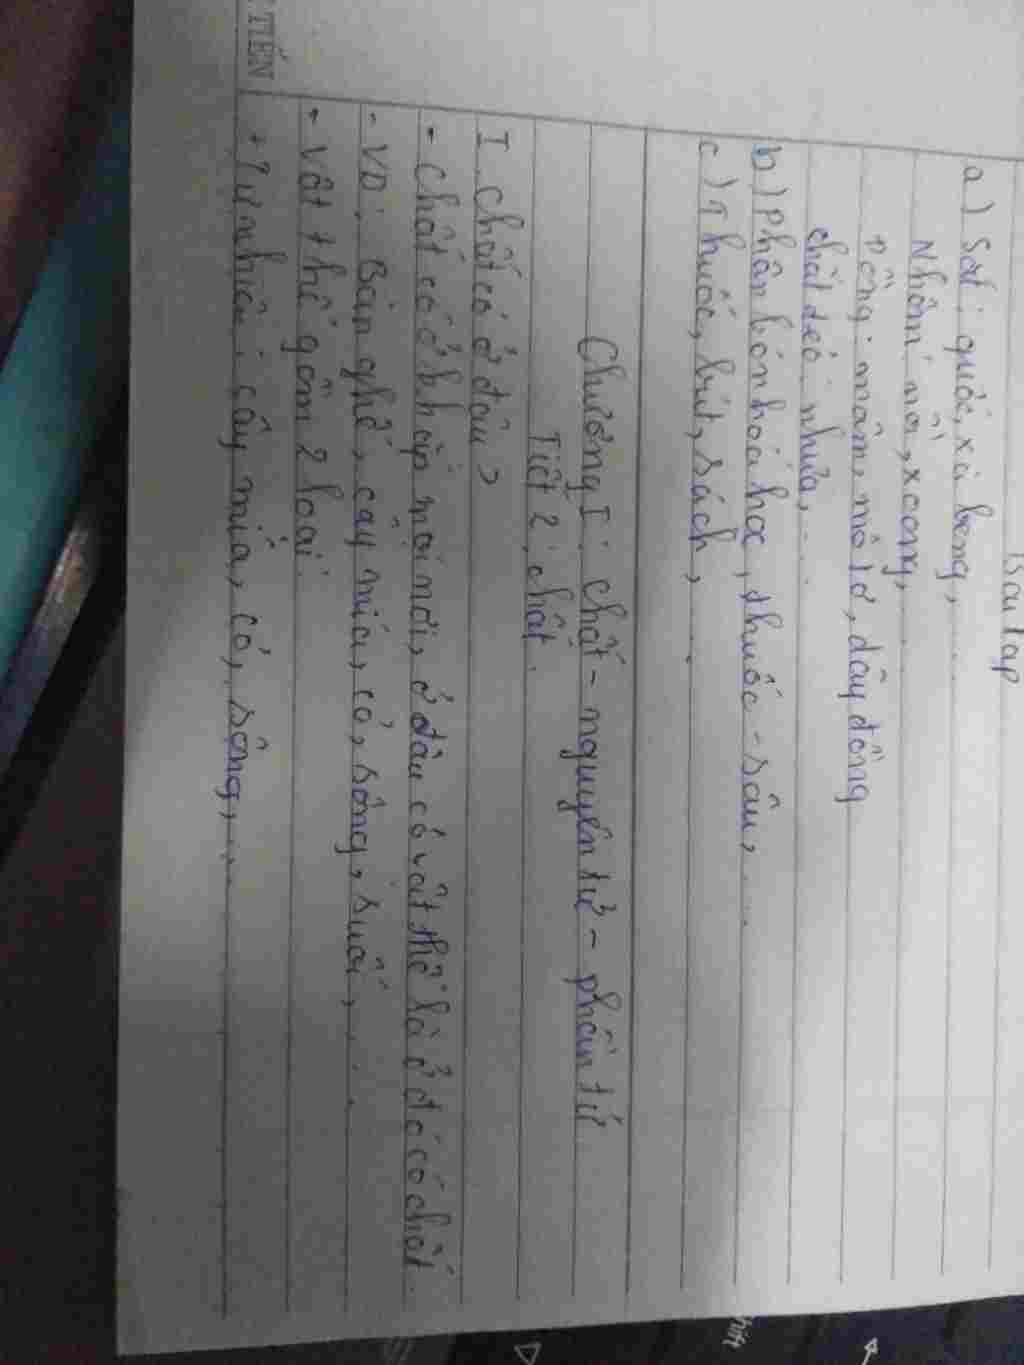 Bài tập
a) Sắt: quốc, xà beng, ...
Nhôm: nồi, xoong, ...
Đồng: mâm, mô tơ, dây đồng
chất dẻo: nhựa, ...
b) Phân bón hoá học, thuốc - sâu, ...
c) Thuốc, bút, sách, ...
Chương I: chất - nguyên tử - phân tử
Tiết 2: chất.
I. Chất có ở đâu?
- Chất có ở khắp mọi nơi, ở đâu có vật thể là ở đó có chất.
- VD: Bàn ghế, cây mía, cỏ, sông, suối, ...
- Vật thể gồm 2 loại:
+ Tự nhiên: cây mía, cỏ, sông, ...
TIẾN